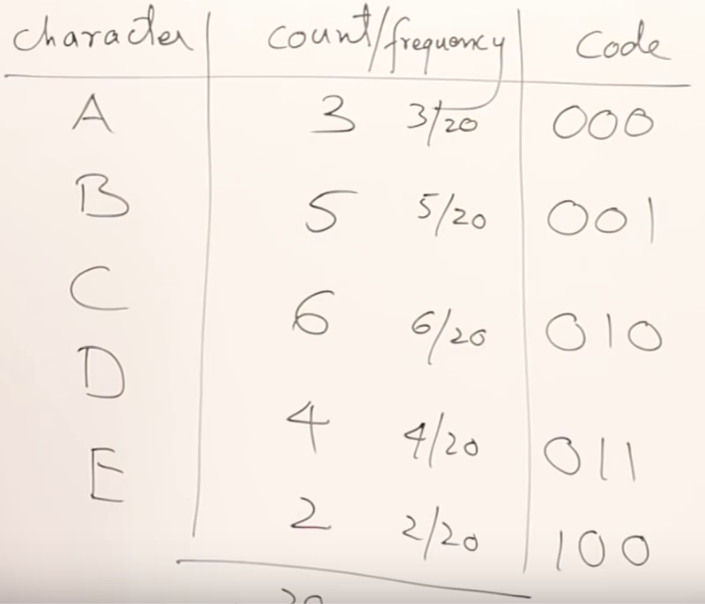 character count/frequency Code
A 3 3/20 000
B 5 5/20 001
C 6 6/20 010
D 4 4/20 011
E 2 2/20 100
20